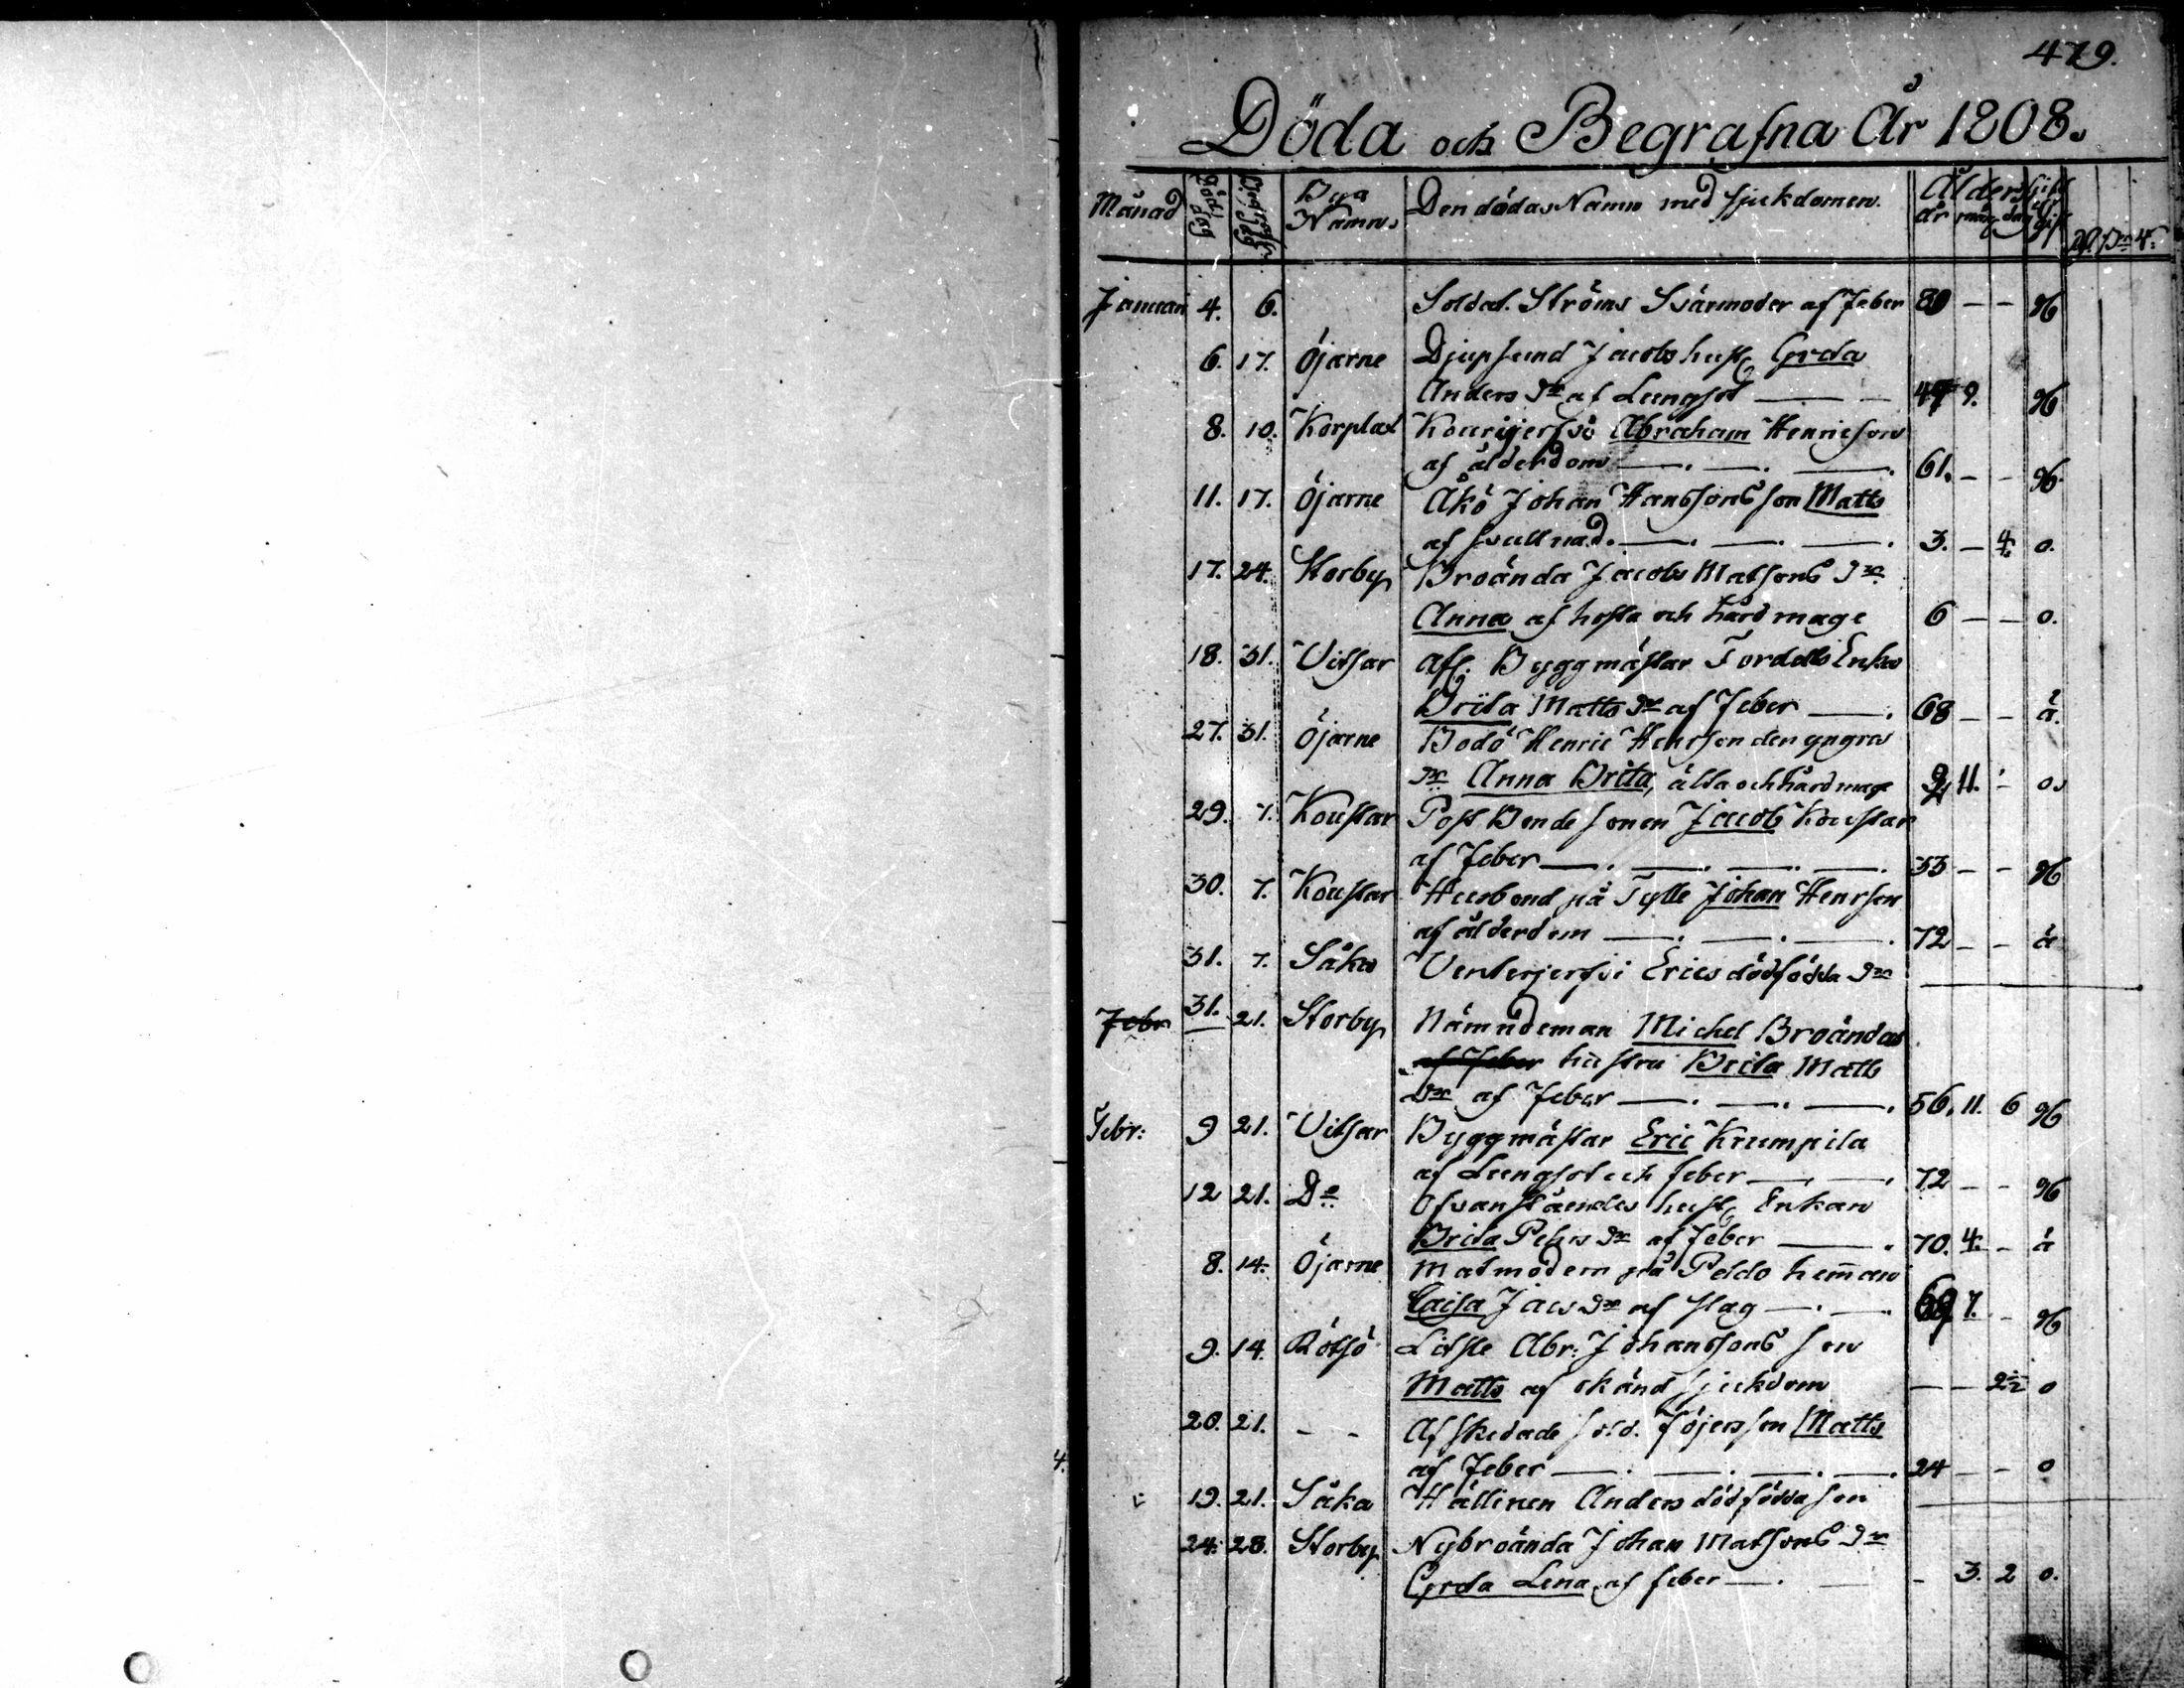 479.
Döda och Begrafna År 1808.
Månad Död: dag Begrafn: dag Bya Namn Den dödas Namn med sjukdomen. Ålder år mån dag gift
Januari 4. 6. Soldat. Ströms Svärmoder af feber 80 — — g
6. 17. Öjarne Djupsund Jacobs hust. Greta
Anders dr af Lungsot — — 47 9. g
8. 10. Korplax Abraham Henricson
af ålderdom — . — . — . 61. — — g
11. 17. Öjarne Åkö Johan Hanssons son Matts
af svullnad. — . — . — . 3. — 4. o.
17. 24. Storby Broända Jacobs Matsons dr
Anna af hosta och hård mage 6 — — o.
18. 31. Vitsar Afl. Byggmästar Tordells Enka
Brita Matts dr af feber — . 68 — — ä.
27. 31. Öjarne Bodö Henric Henrson den yngres
dr Anna Brita, älta och hård mage 2 11. — o.
29. 7. Koustar Post Bonde sonen Jacob Koustar
af feber — . — . — . — . 33 — — g
30. 7. Koustar Husbond på Tylle Johan Henrson
af ålderdom — . — . — . 72 — — ä
31. 7. Såka Erics dödfödda dr
Febr 31. 21. Storby Nämndeman Michel Broändas
af feber hustru Brita Matts
dr af feber — . — . — . 56. 11. 6 g
Febr: 9 21. Vitsar Byggmästar Eric Krumpila
af Lungsot och feber — . — . 72 — — g
12 21. Do Ofvanståendes hust. Enkan
Brita Pehrs dr af feber — . 70. 4. — ä
8. 14. Öjarne Matmodern på Peldo hemman
Caisa Jacs dr af slag — . — . 69 7. — g
9. 14. Rötsö Litsle Abr: Johanssons son
Matts af okänd sjukdom — — 2½ o
20. 21. - - Afskedade sold. Höjers son Matts
af feber — . — . — . — . 24 — — o
19. 21. Såka Hällinen Anders dödfödda son
24. 28. Storby Nybroända Johan Matsons dr
Greta Lena af feber — . — - 3. 2 o.
4.